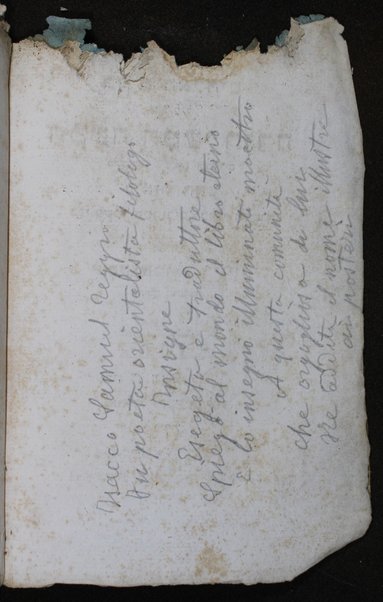 Isacco Samuel Reggio
Fu poeta orientalista filologo
Insigne
Esegeta e traduttore
Spiegò al mondo il libro eterno
E lo insegnò illuminato maestro
A questa comunità
Che orgogliosa di lui
Ne addita il nome illustre
ai posteri